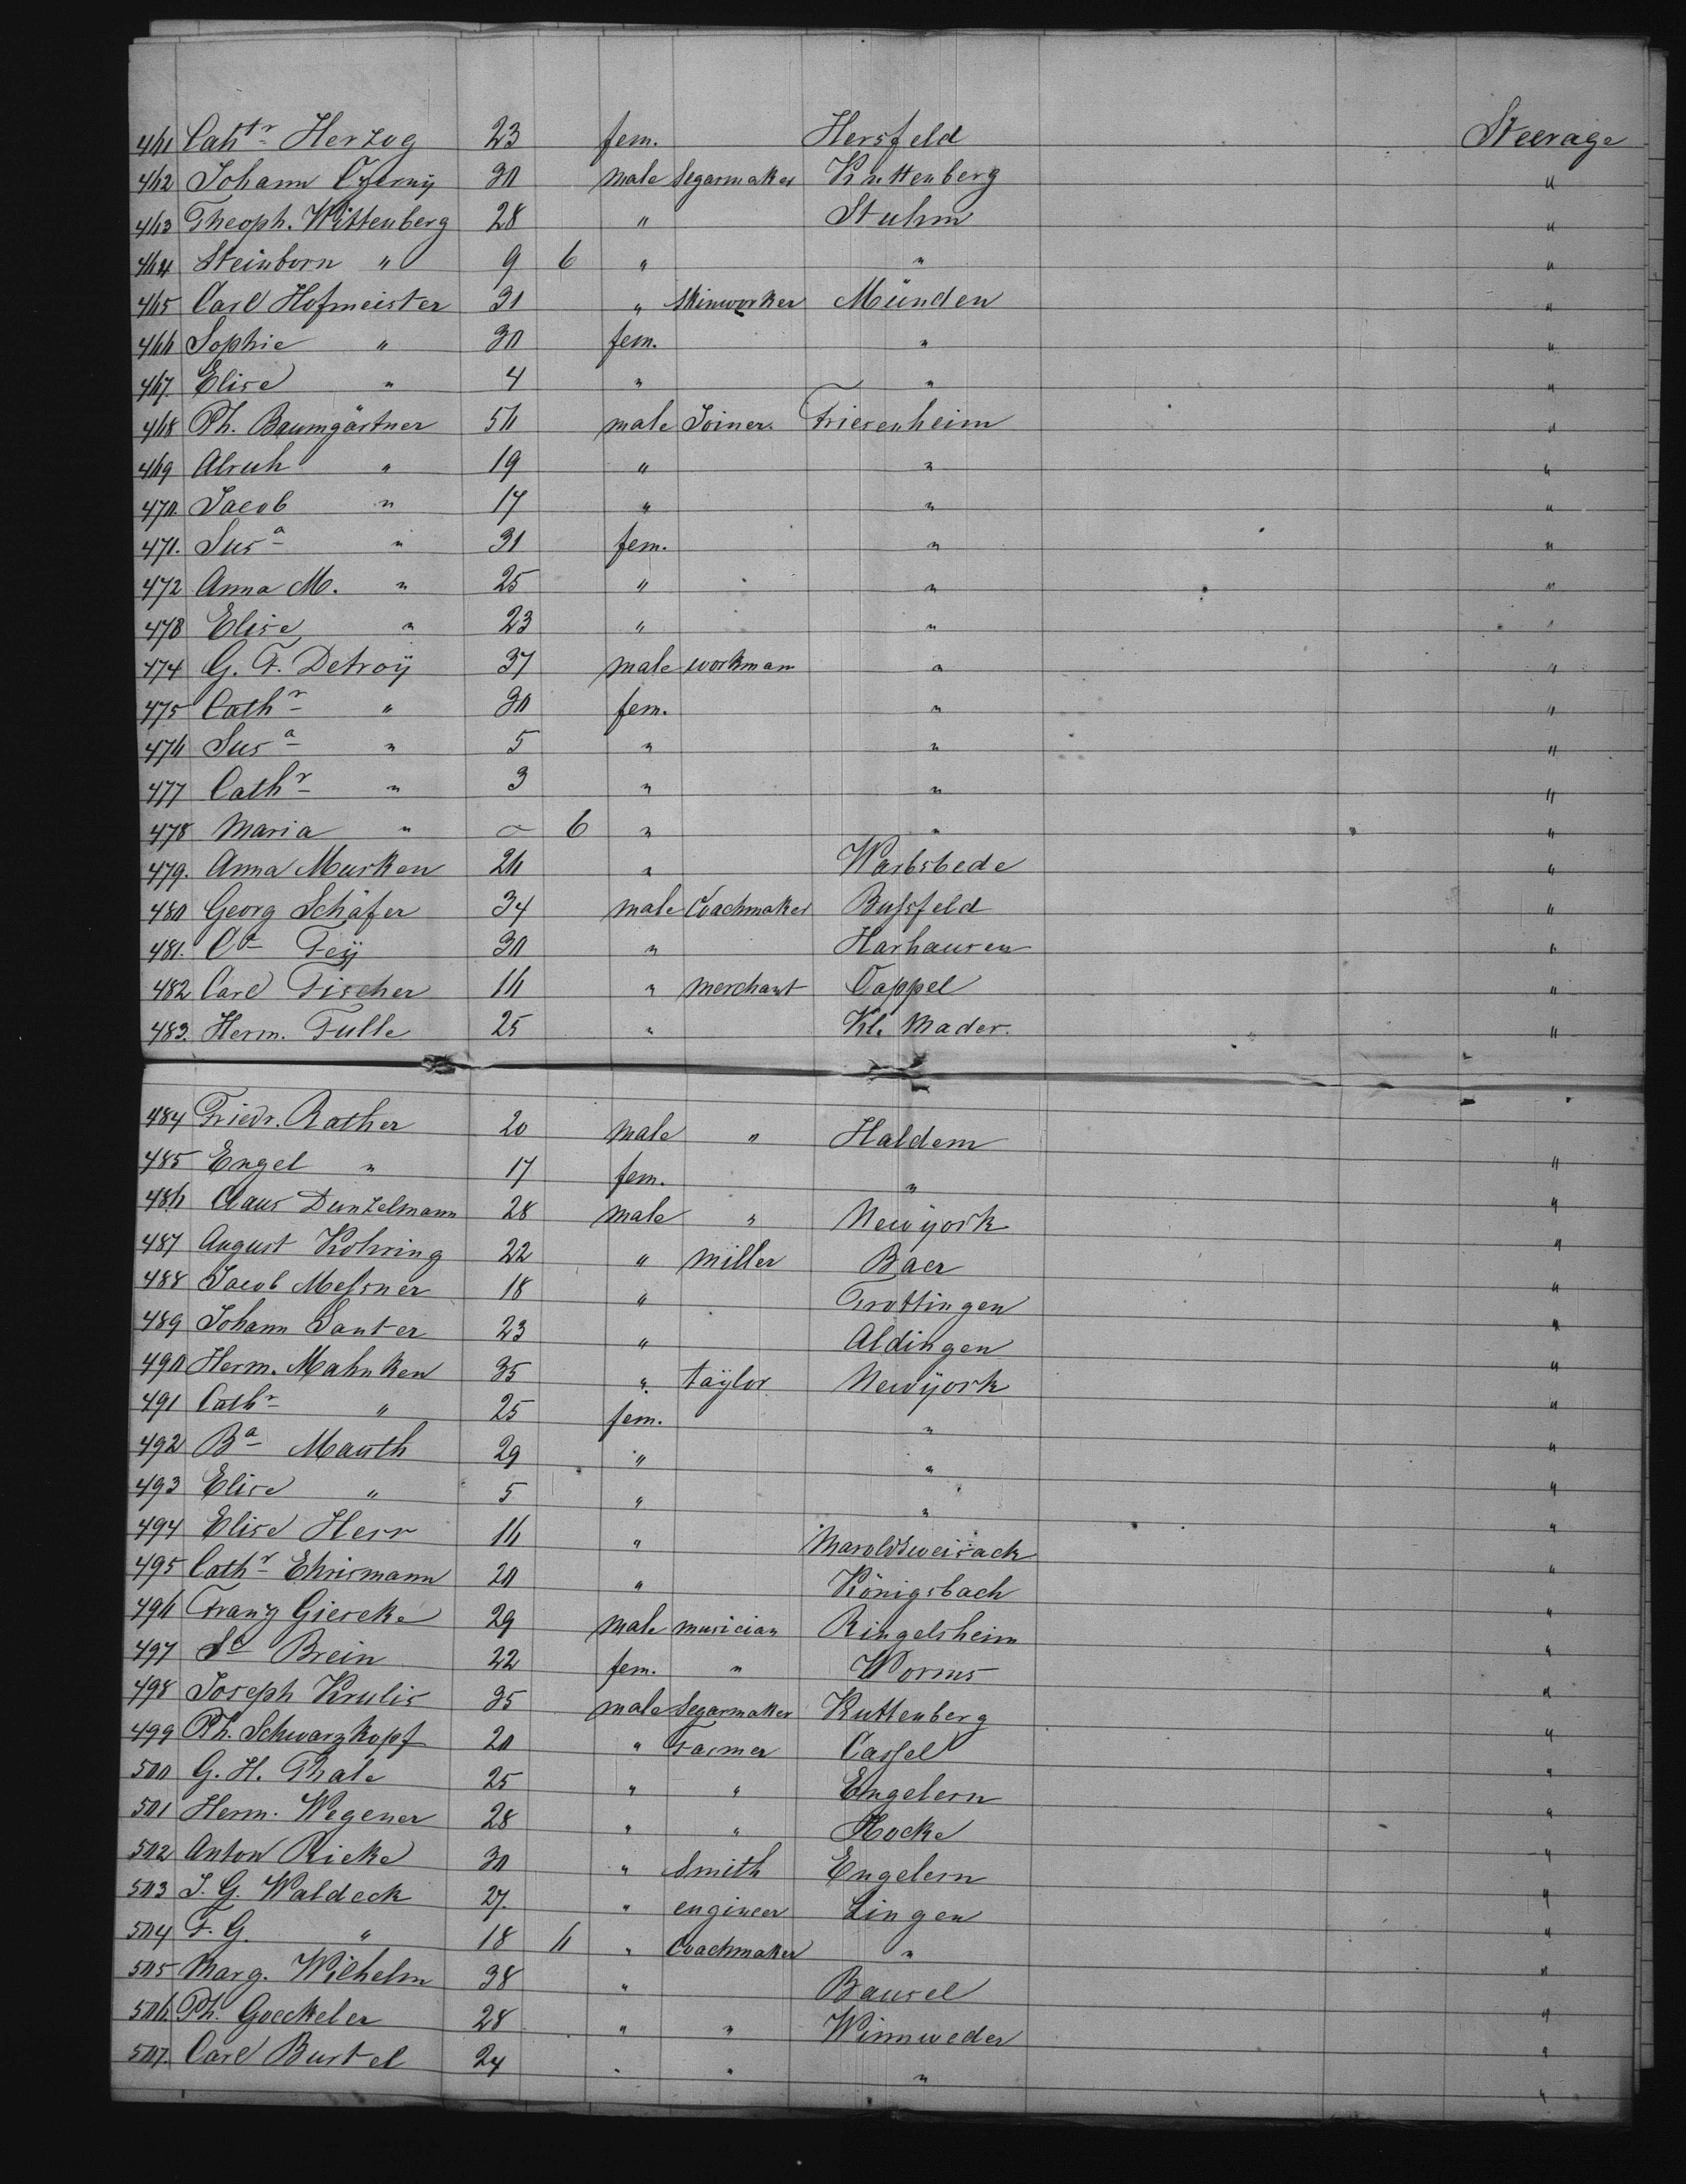 461 Cathr Herzog 23 fem. Hersfeld Steerage
462 Johann Czerny 30 male Segarmaker Kuttenberg "
463 Theoph. Wittenberg 28 " Stuhm "
464 Steinborn " 9 6 " " "
465 Carl Hofmeister 31 " Skinworker Münden "
466 Sophie " 30 fem. " "
467. Elise " 4 " " "
468 Ph. Baumgärtner 56 male Joiner. Friesenheim "
469 " 19 " " "
470. Jacob " 17 " " "
471. Susa " 31 fem. " "
472 Anna M. " 25 " " "
473 Elise " 23 " " "
474 G. F. Detroÿ 37 male workman " "
475 Cathr " 30 fem. " "
476 Susa " 5 " " "
477 Cathr " 3 " " "
478 Maria " – 6 " " "
479. Anna Murken 26 " Warbstede "
480 Georg Schäfer 34 male Coachmaker Bussfeld "
481. Ca Feÿ 30 " Harhausen "
482 Carl Fischer 16 " merchant Cappel "
483. Herm. Fulle 25 " Kl. Mader. "
484 Friedr. Rother 20 male " Haldem "
485 Engel " 17 fem. " "
486 Claus Dunzelmann 28 male " Newÿork "
487 August Kohring 22 " miller Baer "
488 Jacob Messner 18 " Trottingen "
489 Johann Santer 23 " Aldingen "
490 Herm. Mahnken 35 " taÿlor Newÿork "
491 Cathr " 25 fem. " "
492 Ba Mauth 29 " " "
493 Elise " 5 " " "
494 Elise Herr 16 " Maroldsweisack "
495 Cathr Ehrismann 20 " Königsbach "
496 Franz Giercke 29 male musician Ringelsheim "
497 Brein 22 fem. " Worms "
498 Joseph Krulis 35 male Segarmaker Kuttenberg "
499 Ph. Schwarzkopf 20 " Farmer Cassel "
500 G. H. Thale 25 " " Engelern "
501 Herm. Wegener 28 " " Hocke "
502 Anton Ricke 30 " Smith Engelern "
503 J. G. Waldeck 27. " engineer Lingen "
504 F. G. " 18 6 " Coachmaker " "
505 Marg. Wilhelm 38 " Bausel "
506. Ph. Goeckeler 28 " " Winnweder "
507. Carl Burtel 24 " " " "